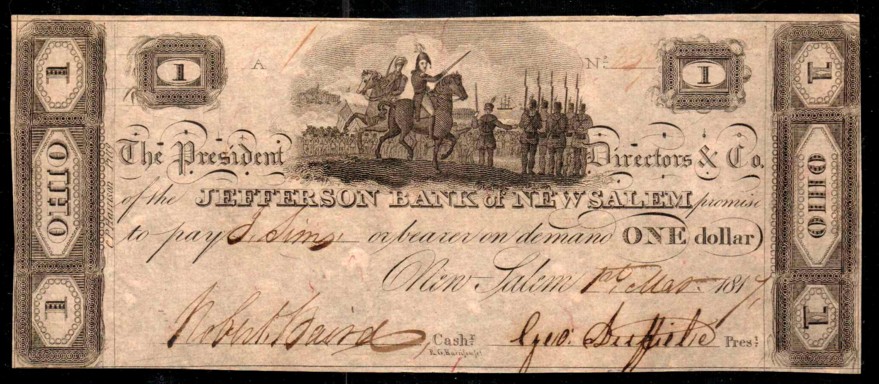 1 A 1 Nº 1
The President Directors & Co.
of the JEFFERSON BANK of NEW SALEM promise
to pay J. Sims or bearer on demand ONE dollar
New-Salem 1st Mar. 1817
Robert Baird Casht Geo: Duffield Prest
1 OHIO 1
L OHIO L